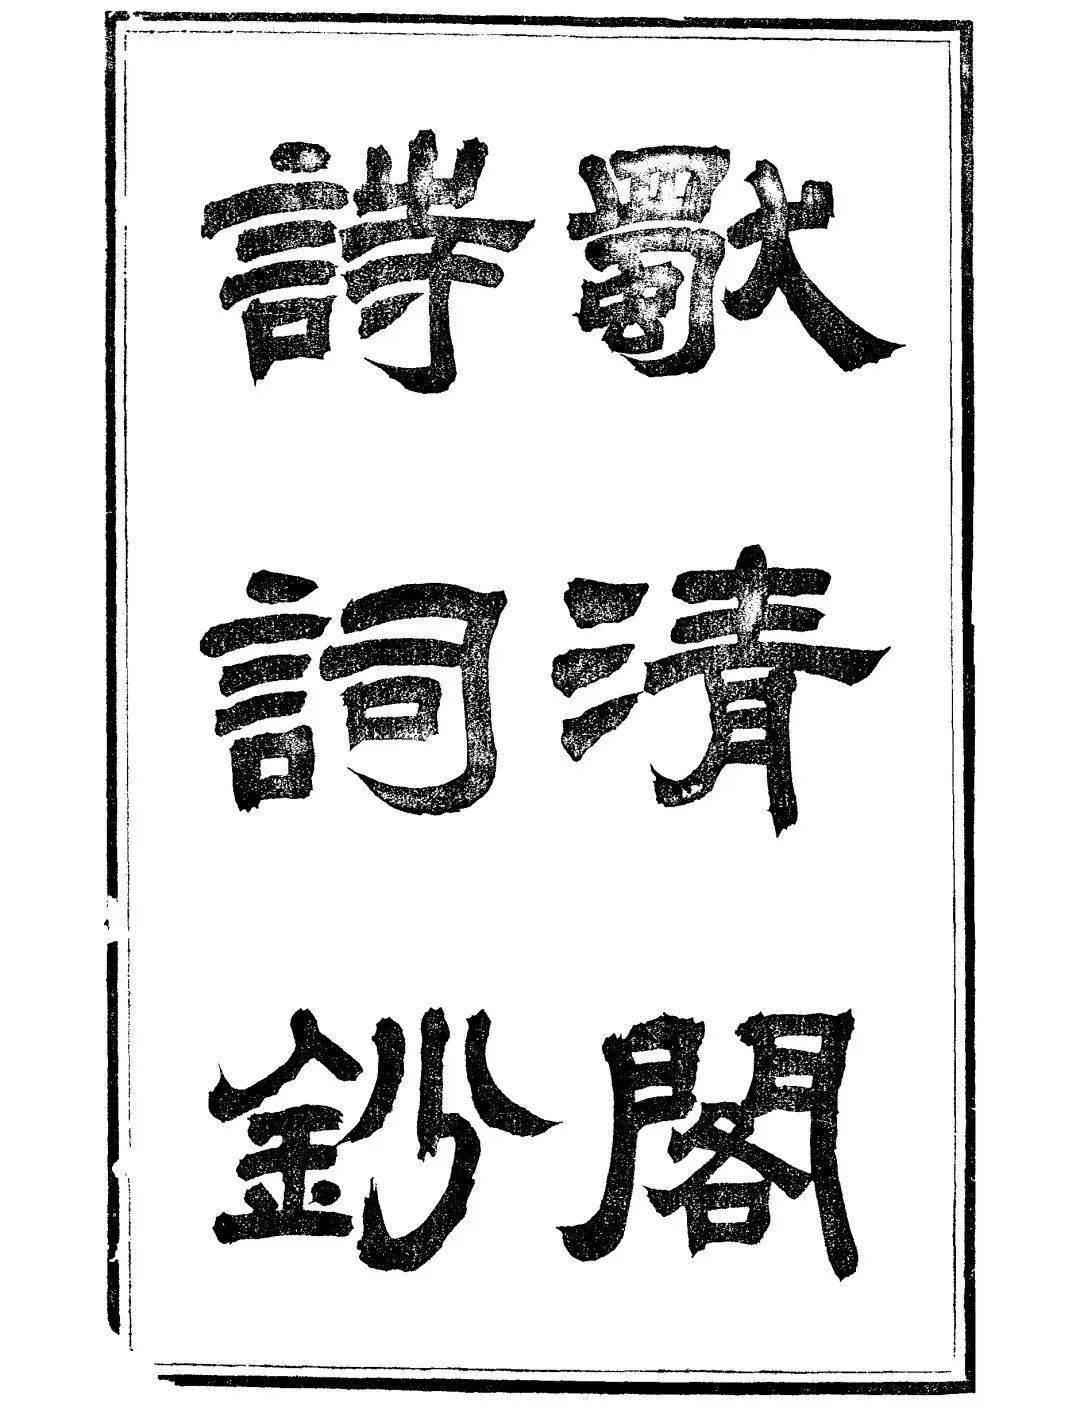 獨清閣
詩詞鈔